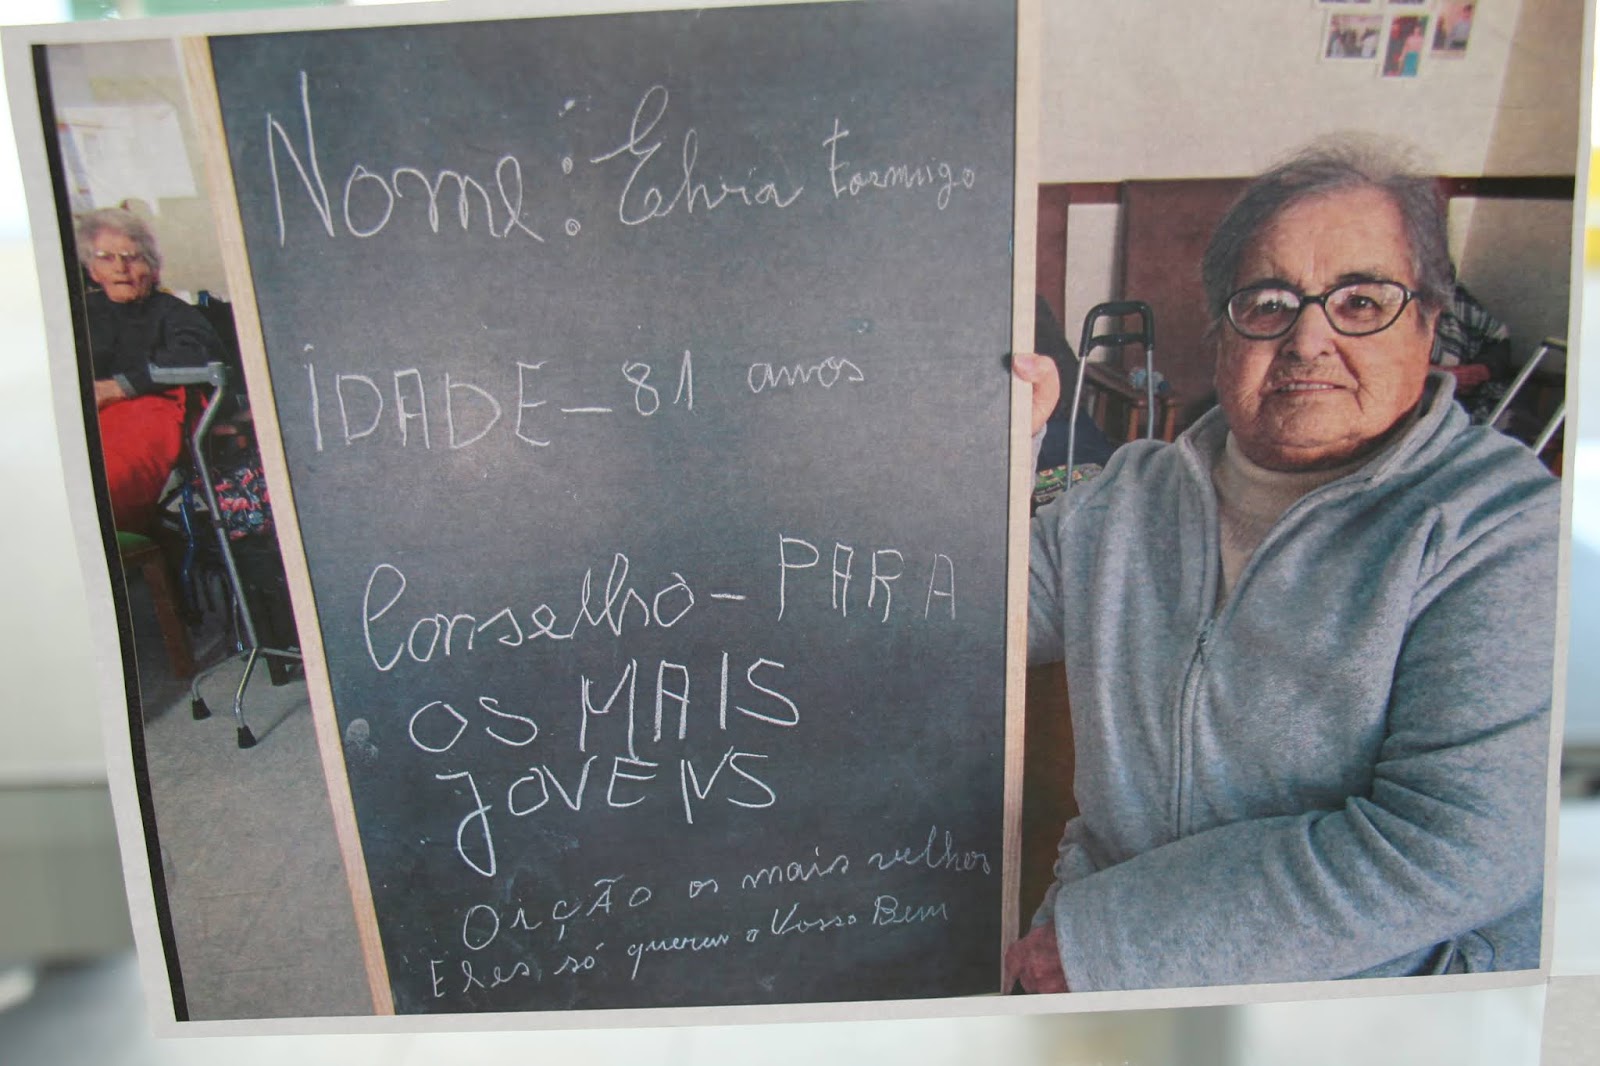 Nome: Elvia Formigo
IDADE - 81 anos
Conselho - PARA
OS MAIS
JOVENS
OiÇÃO os mais velhos
Eles só querem o Vosso Bem